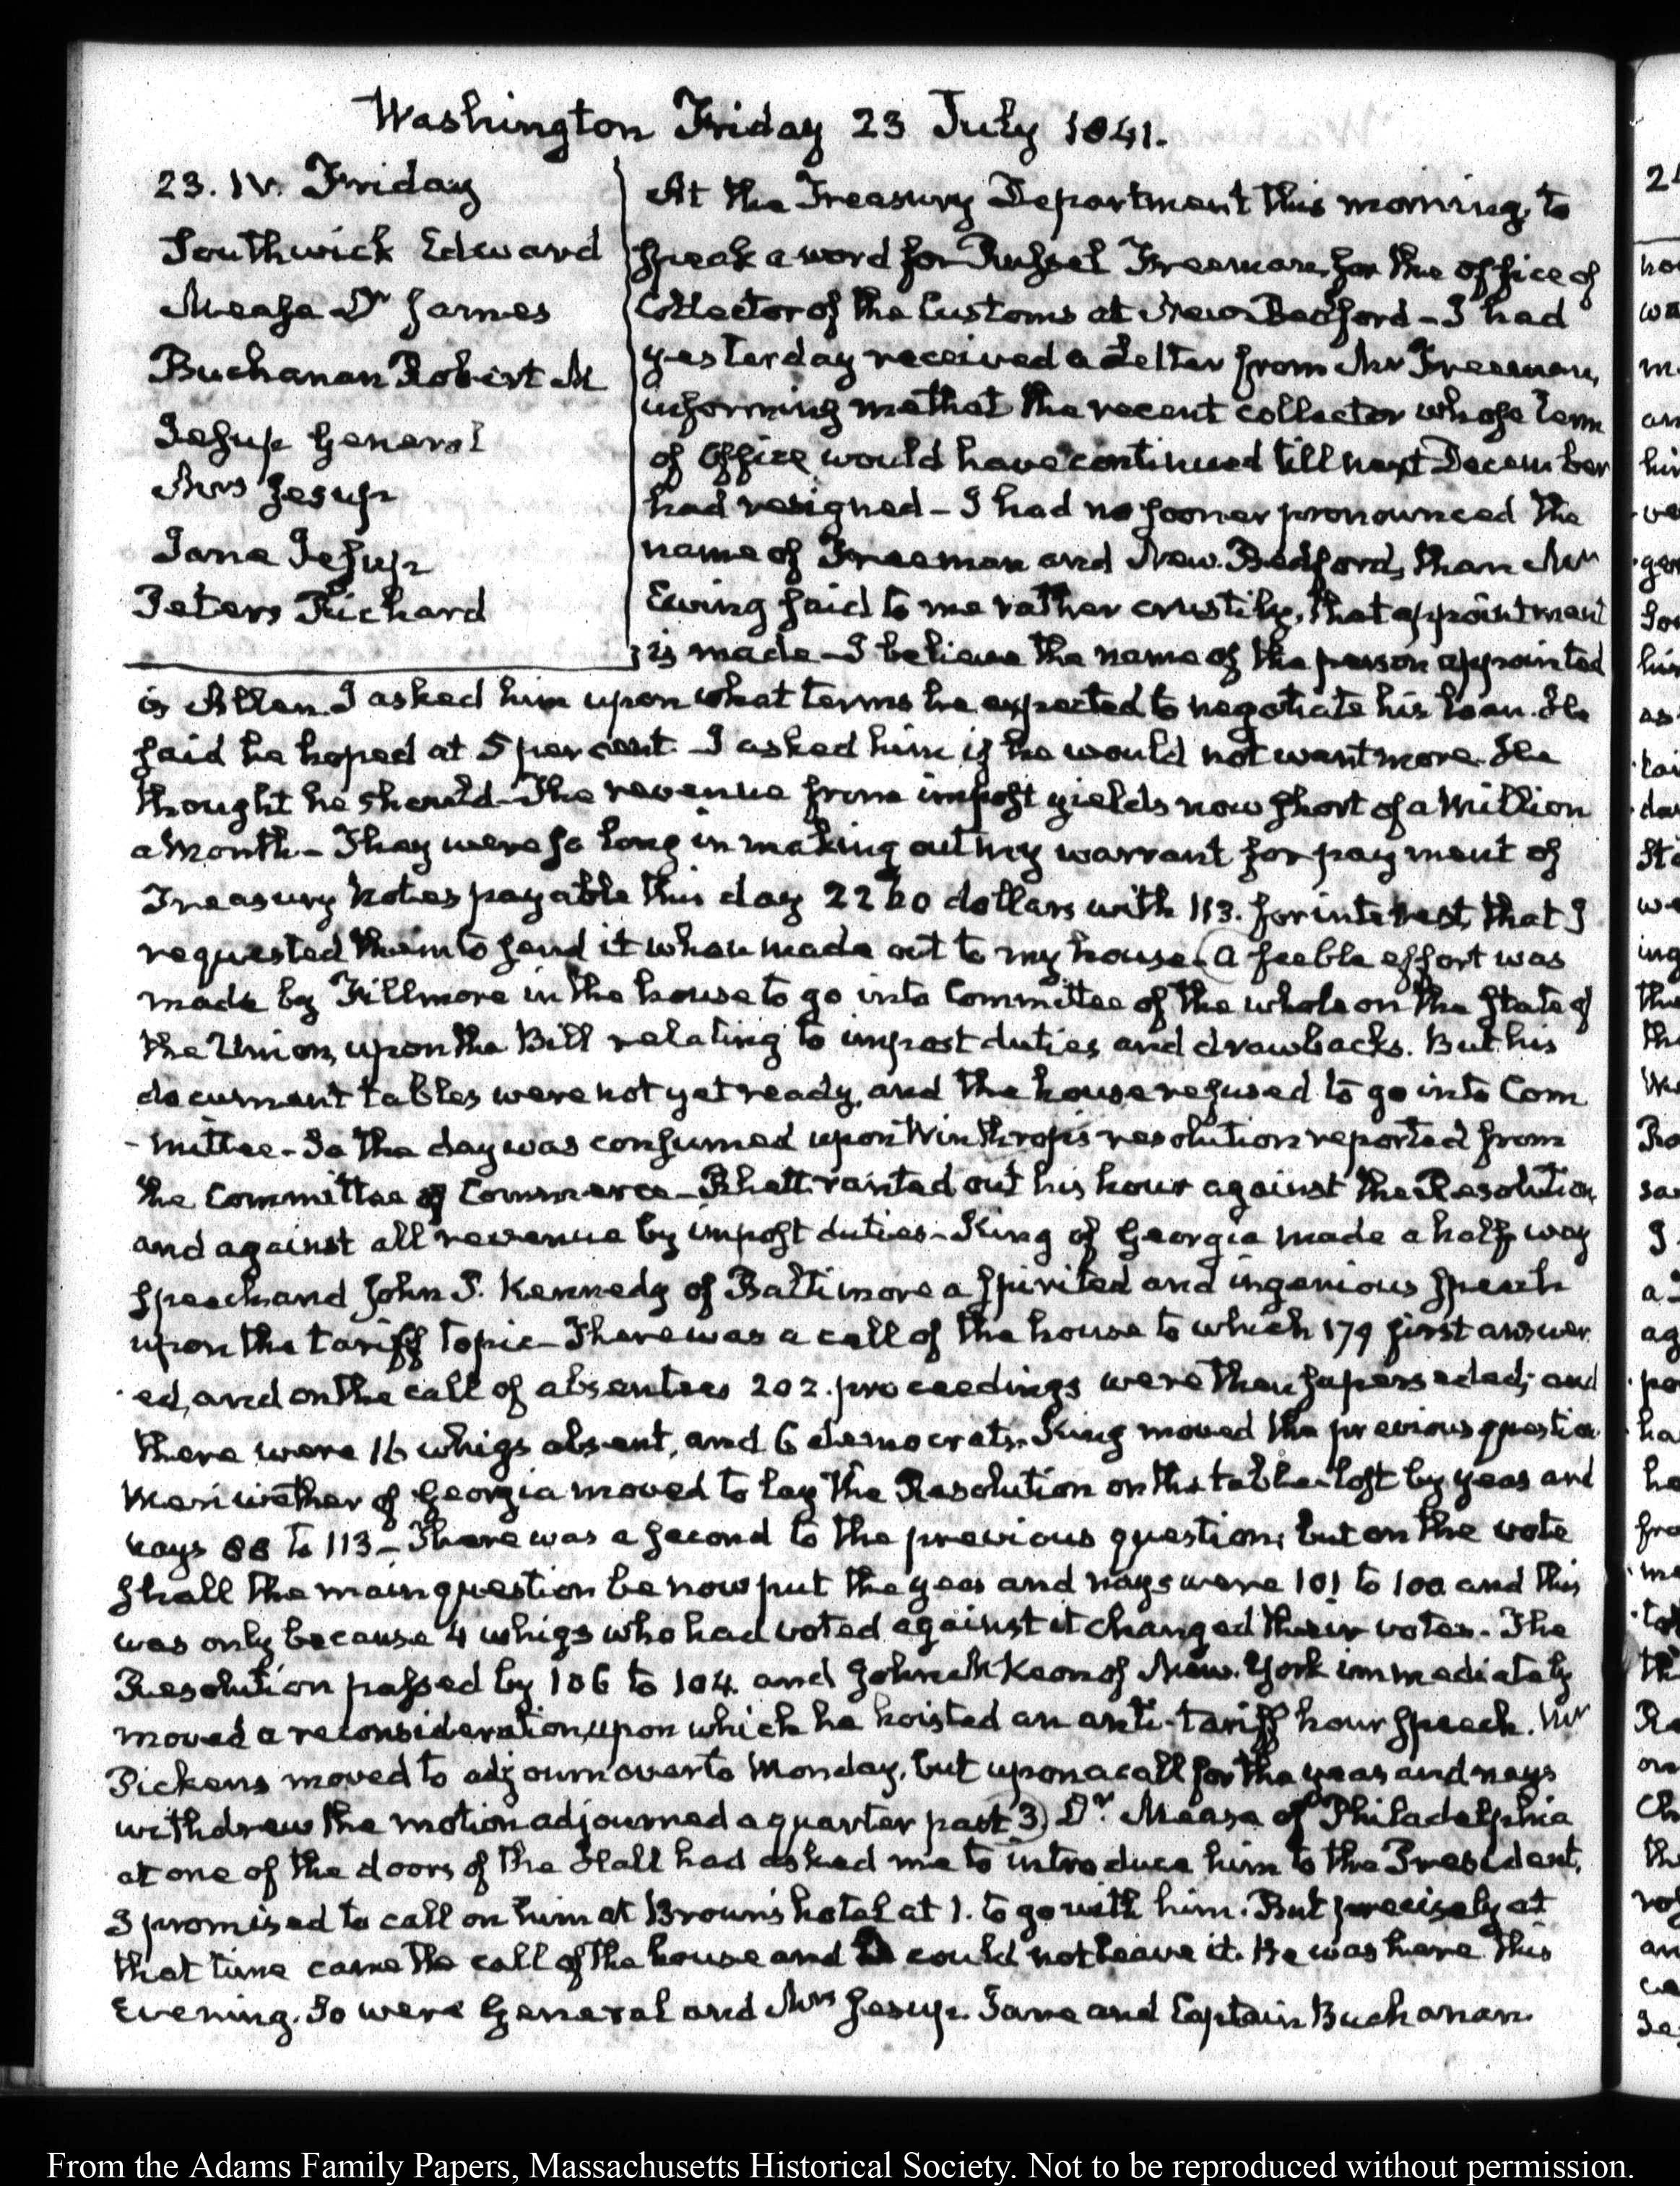 Washington Friday 23 July 1841.
23. IV. Friday
Southwick Edward
Mease Dr James
Buchanan Robert M
Jesup General
Mrs Jesup
Jane Jesup
Peters Richard
At the Treasury Department this morning, to
speak a word for Russel Freeman, for the office of
Collector of the Customs at New-Bedford - I had
yesterday received a Letter from Mr Freeman,
informing me that the recent collector whose term
of Office would have continued till next December
had resigned - I had no sooner pronounced the
name of Freeman and New-Bedford, than Mr
Ewing said to me rather crustily, that appointment
is made - I believe the name of the person appointed
is Allen. I asked him upon what terms he expected to negotiate his loan. He
said he hoped at 5 per cent. I asked him if he would not want more. He
thought he should - The revenue from impost yields now short of a Million
a Month - They were so long in making out my warrant for payment of
Treasury Notes payable this day 2260 dollars with 113. for interest, that I
requested them to send it when made out to my house. A feeble effort was
made by Fillmore in the house to go into Committee of the whole on the State of
the Union, upon the Bill relating to impost duties and drawbacks. But his
document tables were not yet ready, and the house refused to go into Com
-mittee - So the day was consumed upon Winthrop's resolution reported from
the Committee of Commerce - Rhett ranted out his hour against the Resolution
and against all revenue by impost duties - King of Georgia made a half way
speech and John P. Kennedy of Baltimore a spirited and ingenious speech
upon the tariff topic - There was a call of the house to which 179 first answer
-ed, and on the call of absentees 202. proceedings were then superseded; and
there were 16 whigs absent, and 6 democrats. King moved the previous question
Meriwether of Georgia moved to lay the Resolution on the table - lost by yeas and
nays 88 to 113 - There was a second to the previous question; but on the vote
shall the main question be now put the yeas and nays were 101 to 100 and this
was only because 4 whigs who had voted against it changed their votes. The
Resolution passed by 106 to 104. and John McKeon of New-York immediately
moved a reconsideration, upon which he hoisted an anti-tariff hour speech. Mr
Pickens moved to adjourn over to Monday, but upon a call for the yeas and nays
withdrew the motion adjourned a quarter past 3) Dr Mease of Philadelphia
at one of the doors of the Hall had asked me to introduce him to the President,
I promised to call on him at Brown's hotel at 1. to go with him. But precisely at
that time came the call of the house and I could not leave it. He was here this
Evening. So were General and Mrs Jesup. Jane and Captain Buchanan.
From the Adams Family Papers, Massachusetts Historical Society. Not to be reproduced without permission.